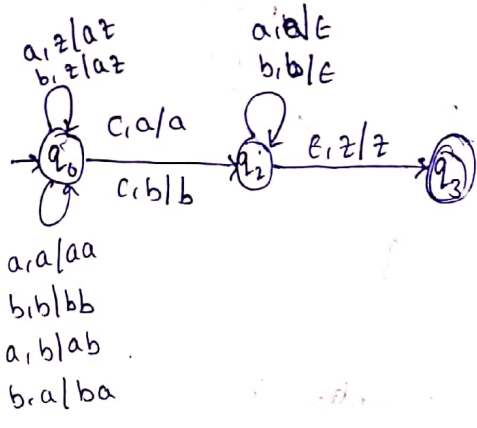 a,z/az
b,z/az
a,a/ε
b,b/ε
c,a/a
q0
c,b/b
q2
ε,z/z
q3
a,a/aa
b,b/bb
a,b/ab
b,a/ba